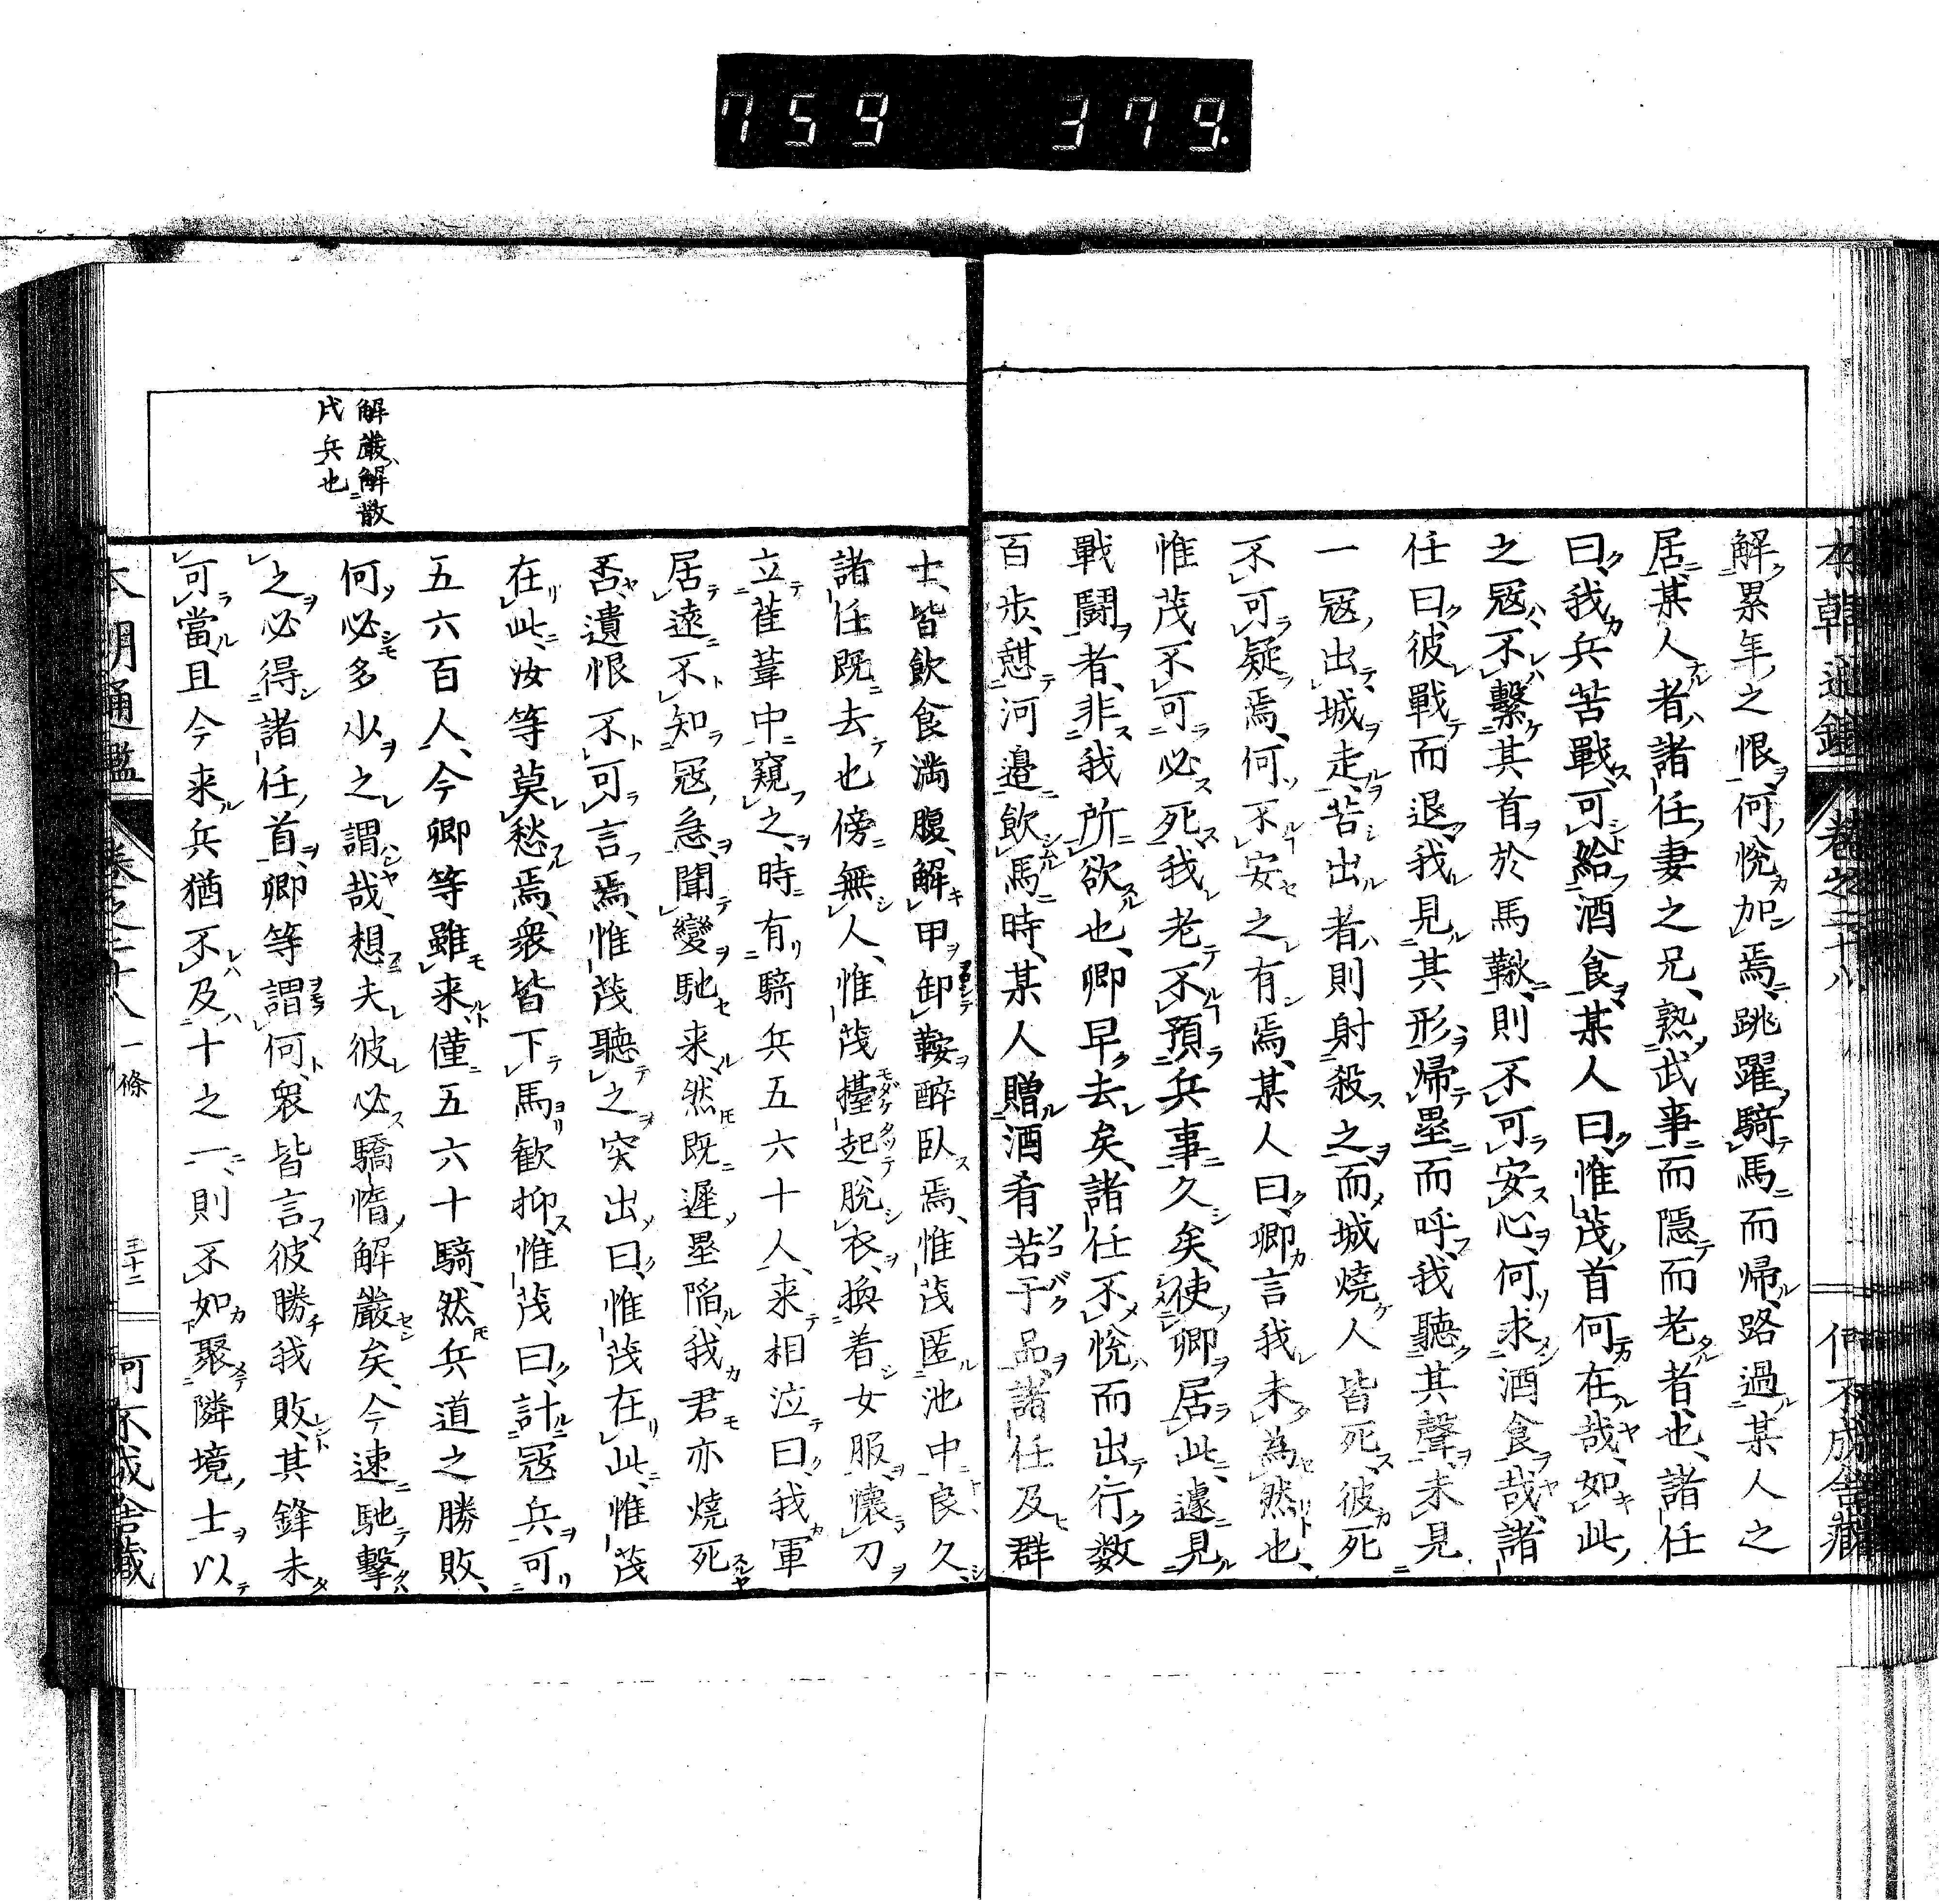 759 379.
本朝通鑑 卷之二十八 何不成舎藏
解累年之恨、何悅加焉、跳躍騎馬而帰、路過某人之
居、某人者、諸任妻之兄、熟武事而隱而老者也、諸任
曰、我兵苦戰、可給酒食、某人曰、惟茂首何在哉、如此
之寇、不繫其首於馬鞦、則不可安心、何求酒食哉、諸
任曰、彼戰而退、我見其形、帰壘而呼、我聽其聲、未見
一寇出城走、若出者、則射殺之、而城燒人皆死、彼死
不可疑焉、何不安之有焉、某人曰、卿言我未為然也、
惟茂不可必死、我老不預兵事久矣、使卿居此、遽見
戰鬪者、非我所欲也、卿早去矣、諸任不悅而出、行数
百步、憇河邊飲馬、時某人贈酒肴若干品、諸任及群
士、皆飲食満腹、解甲卸鞍醉臥焉、惟茂匿池中良久、
諸任既去也傍無人、惟茂擡起脫衣、換着女服、懷刀
立萑葦中窺之、時有騎兵五六十人、来相泣曰、我軍
居遠不知寇急、聞變馳来、然既遲壘陥、我君亦燒死
否、遺恨不可言焉、惟茂聽之突出曰、惟茂在此、惟茂
在此、汝等莫愁焉、衆皆下馬歓抑、惟茂曰、計寇兵可
五六百人、今卿等雖来、僅五六十騎、然兵道之勝敗、
何必多少之謂哉、想夫彼必驕惰解嚴矣、今速馳擊
之必得諸任首、卿等謂何、衆皆言彼勝我敗、其鋒未
可當、且今来兵猶不及十之一、則不如聚隣境士以
解嚴、解散
戍兵也
本朝通鑑 卷之二十八 一條 三十二 何不成舎藏